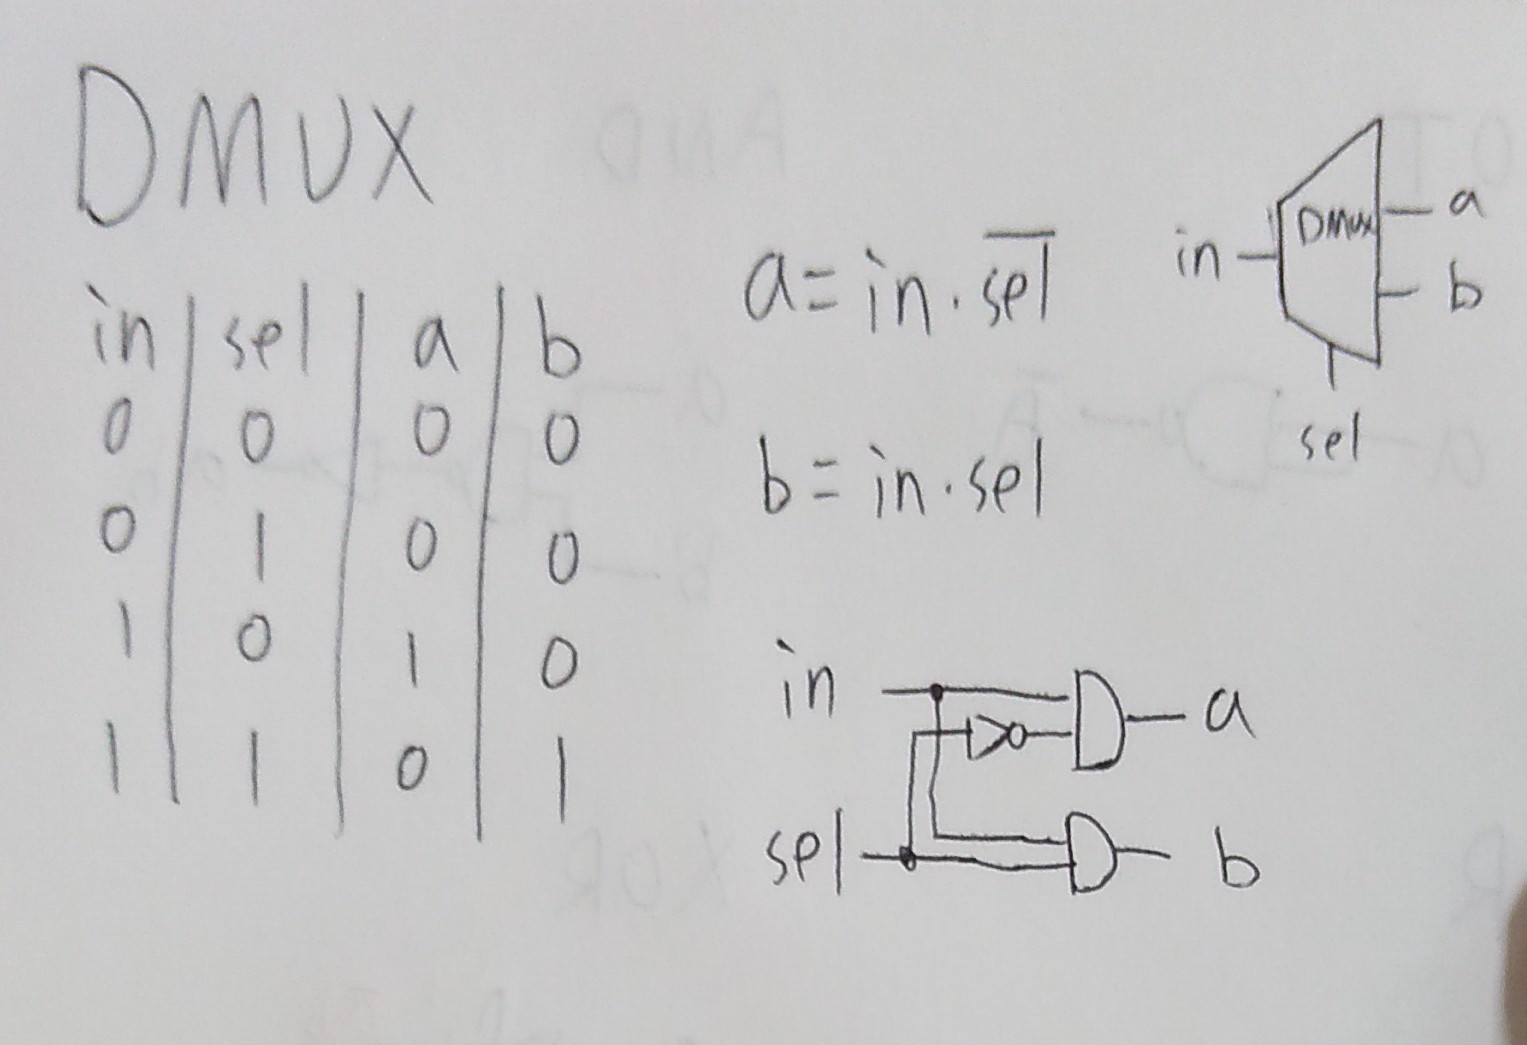 DMUX
in | sel | a | b
0 | 0 | 0 | 0
0 | 1 | 0 | 0
1 | 0 | 1 | 0
1 | 1 | 0 | 1
a = in · s̅e̅l̅
b = in · sel
in
DMux
a
b
sel
in
a
sel
b